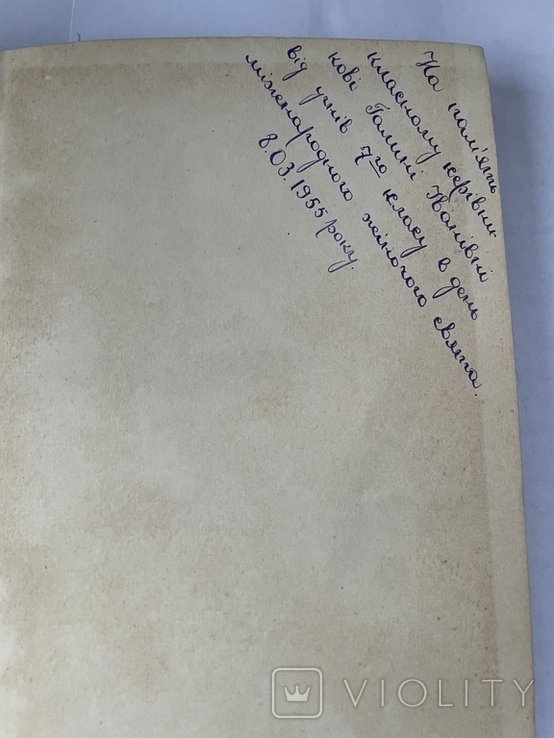 На пам'ять
класному керівни
кові Галині Іванівні
від учнів 7го класу в день
міжнародного жіночого свята.
8.03.1955 року.
VIOLITY